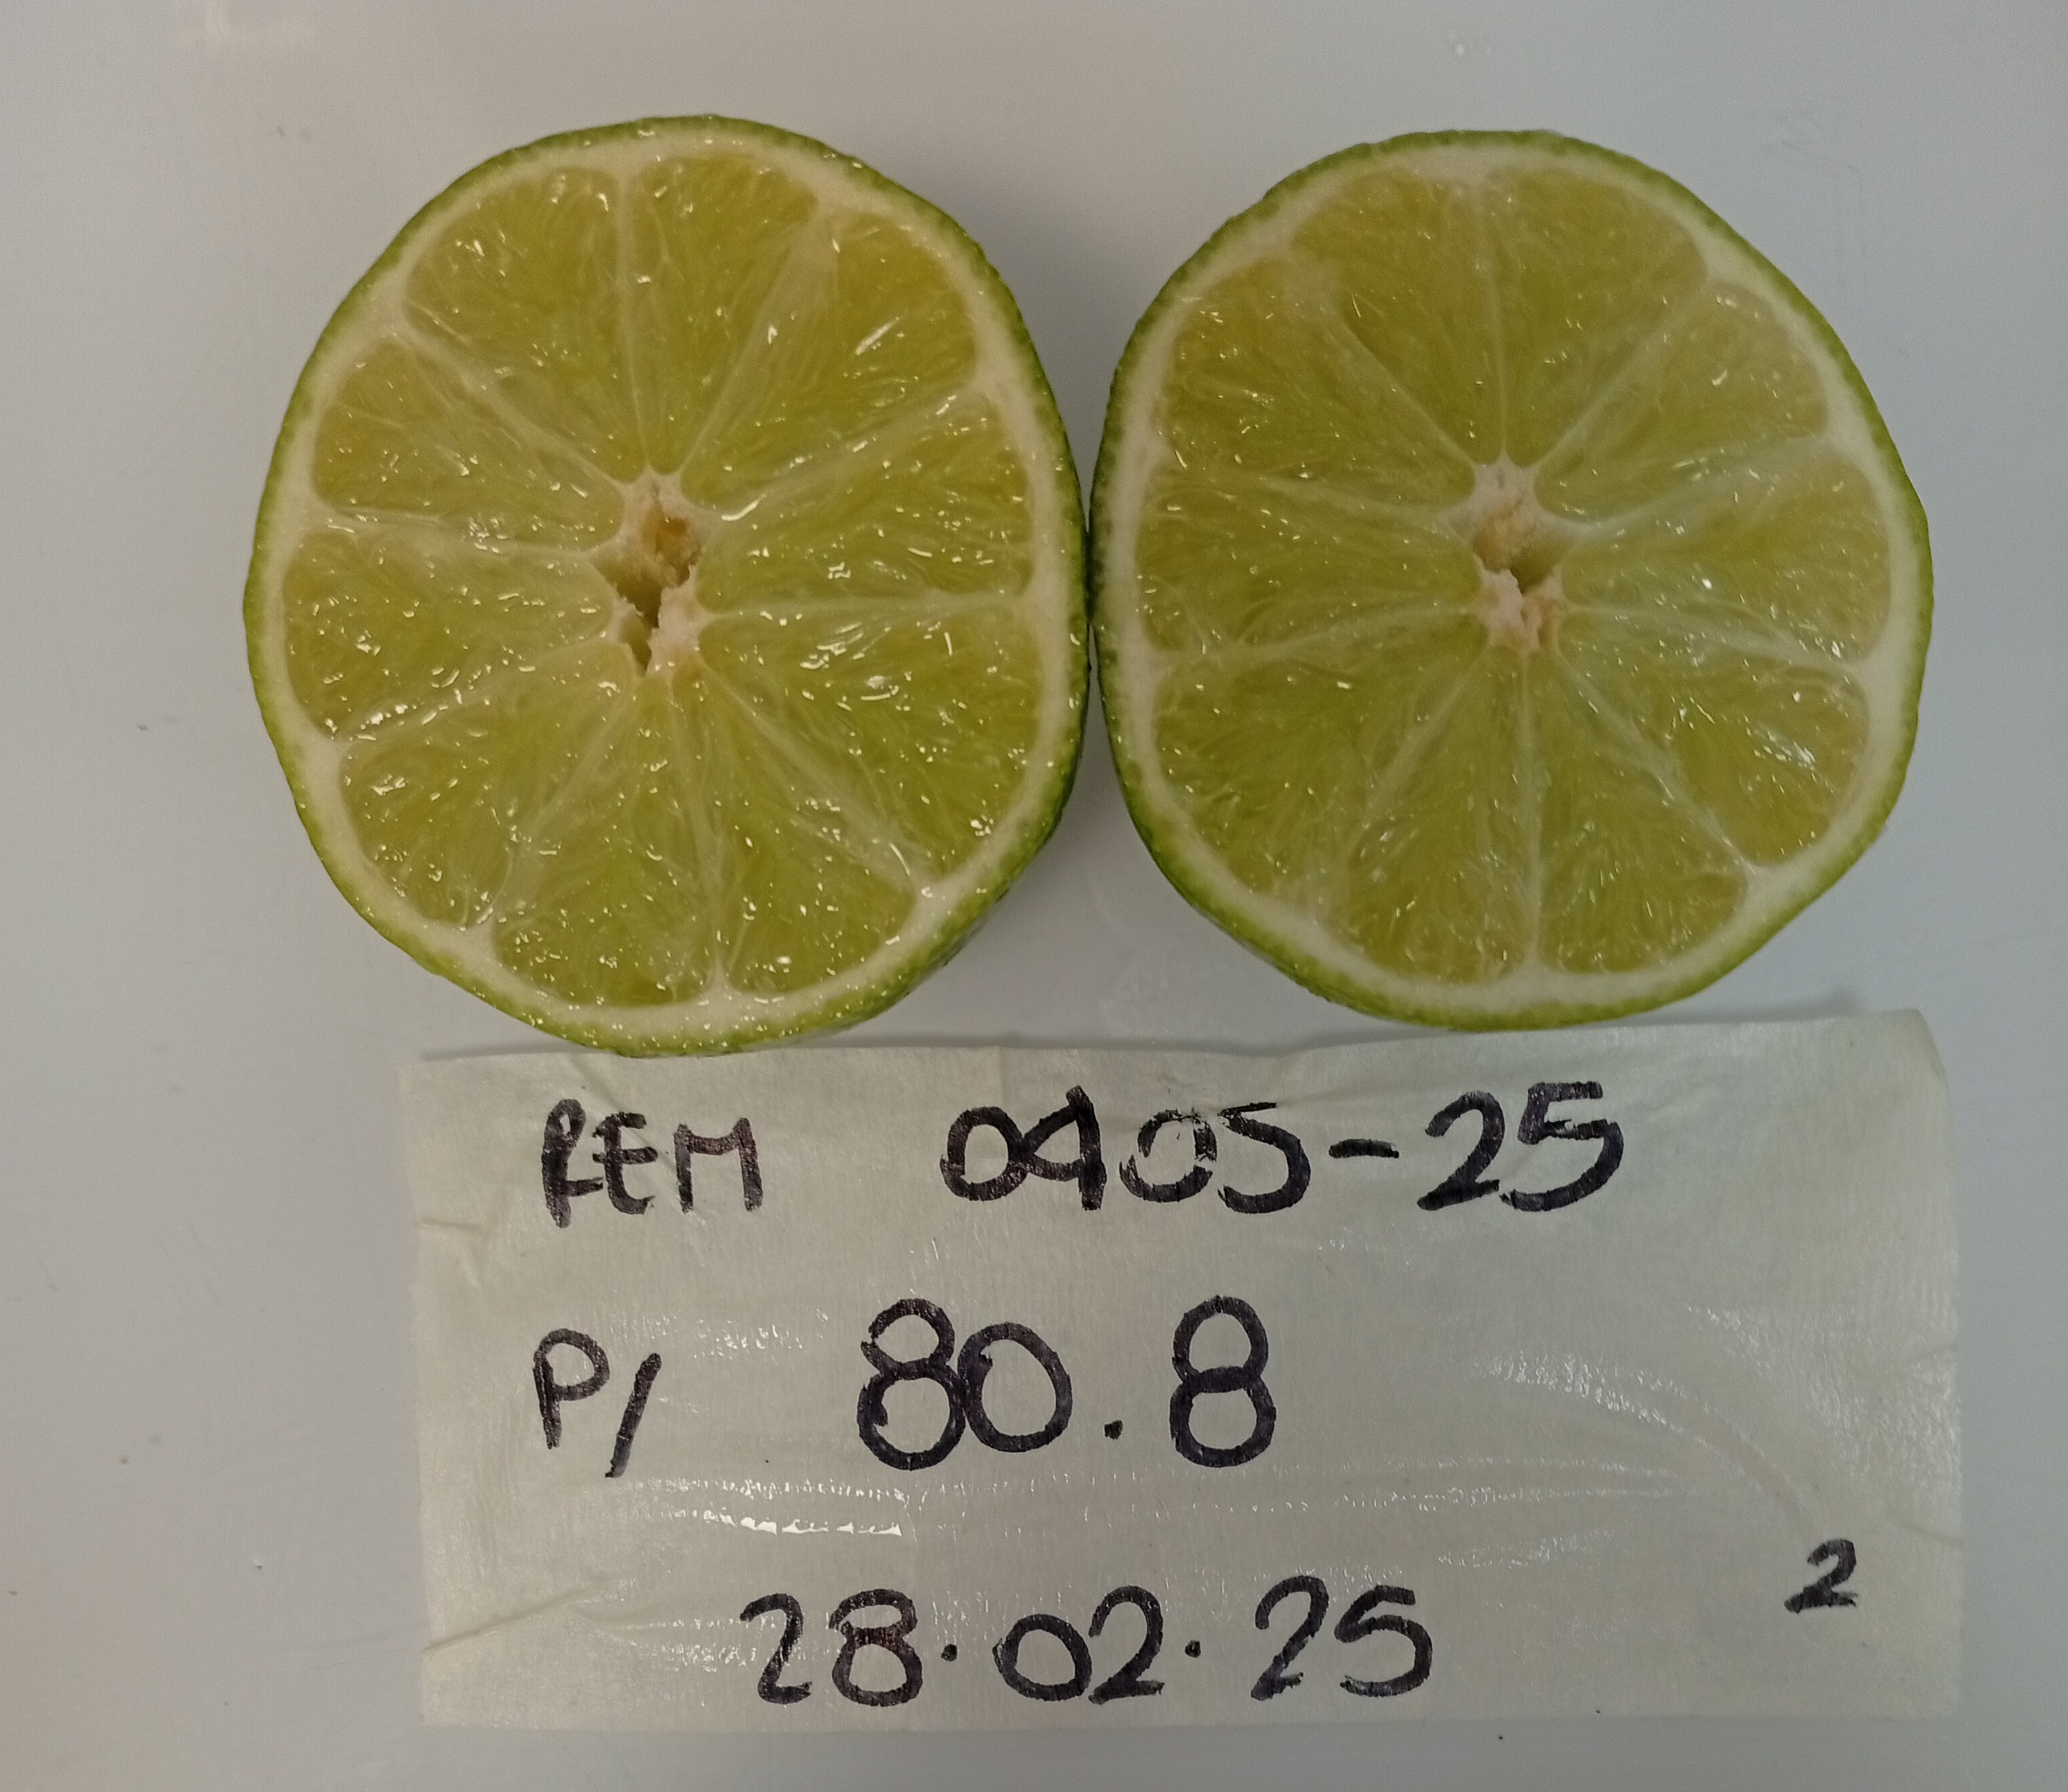 REM 0905-25
P/ 80.8
28.02.25 2